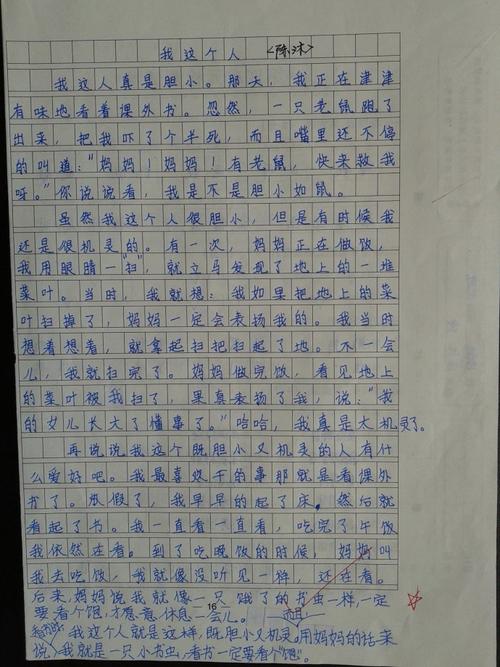 我这个人 <陈沐>
我这人真是胆小。那天，我正在津津
有味地看着课外书。忽然，一只老鼠跑了
出来，把我吓了个半死，而且嘴里还不停
的叫道：“妈妈！妈妈！有老鼠，快来救我
呀。”你说说看，我是不是胆小如鼠。
虽然我这个人很胆小，但是有时候我
还是很机灵的。有一次，妈妈正在做饭，
我用眼睛“扫”，就立马发现了地上的一堆
菜叶。当时，我就想：我如果把地上的菜
叶扫掉了，妈妈一定会表扬我的。我当时
想着想着，就拿起扫把扫起了地。不一会
儿，我就扫完了。妈妈做完饭，看见地上
的菜叶被我扫了，果真表扬了我，说：“我
的女儿长大了懂事了。”哈哈，我真是太机灵了。
再说说我这个既胆小又机灵的人有什
么爱好吧。我最喜欢干的事那就是看课外
书了。放假了，我早早的起了床，然后就
看起了书。我一直看一直看，吃完了午饭
我依然在看。到了吃晚饭的时候，妈妈叫
我去吃饭，我就像没听见一样，还在看。
后来，妈妈说我就像一只饿了的书虫一样，一定
要看个饱，才愿意休息一会儿。
16
我这个人就是这样，既胆小又机灵。用妈妈的话来
说，我就是一只小书虫，看书一定要看个“饱”。